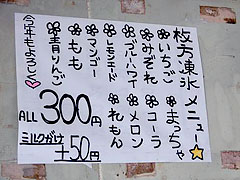 枚方凍氷メニュー
❀いちご ❀まっちゃ☆
❀みぞれ ❀コーラ
❀ブルーハワイ ❀メロン
❀レモンエード ❀れもん
❀マンゴー
❀もも
❀青りんご
今年もよろしく♡
ALL 300円
ミルクがけ
+50円